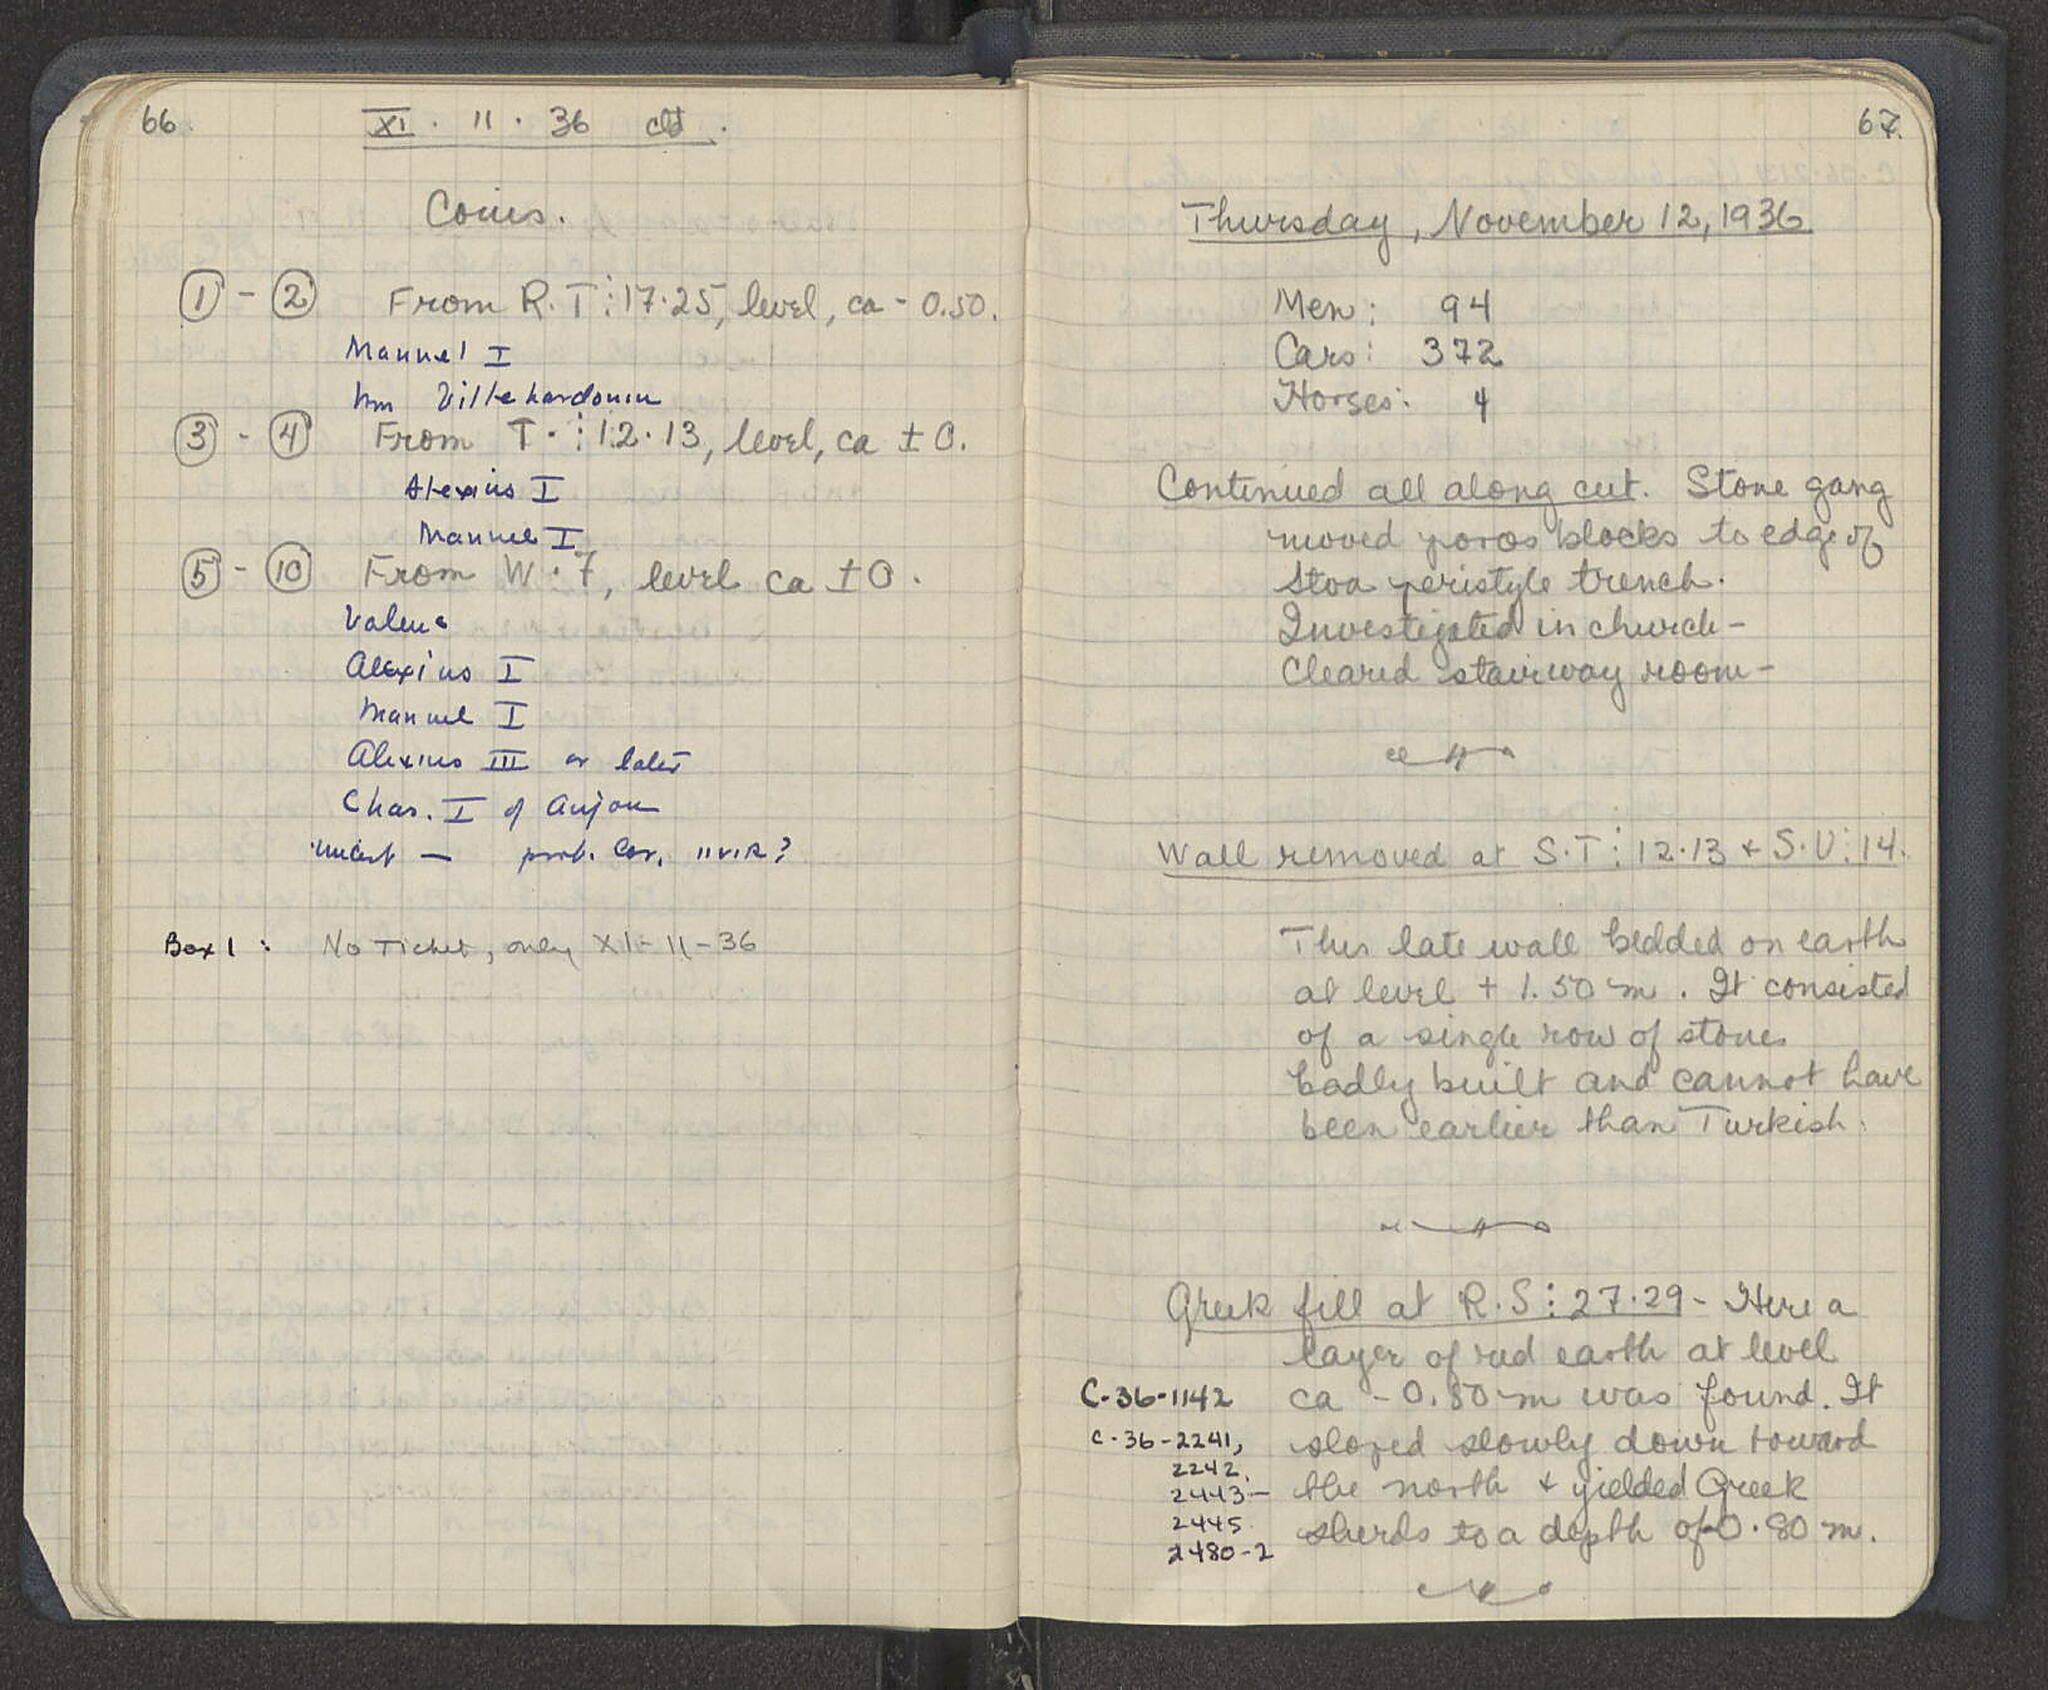 66.
XI · 11 · 36 ctd.
Coins.
① - ② From R.T:17·25, level, ca - 0.50.
Manuel I
Wm Villehardouin
③ - ④ From T· : 12·13, level, ca ± 0.
Alexius I
Manuel I
⑤ - ⑩ From W·7, level ca ± 0.
Valens
Alexius I
Manuel I
Alexius III or later
Chas. I of Anjou
uncert — prob. Cor. IIVIR?
Box 1 : No Ticket, only XI-11-36
67.
Thursday, November 12, 1936
Men: 94
Cars: 372
Horses: 4
Continued all along cut. Stone gang
moved poros blocks to edge of
Stoa peristyle trench.
Investigated in church -
Cleared stairway room -
Wall removed at S·T: 12·13 + S·U: 14.
This late wall bedded on earth
at level + 1.50 m. It consisted
of a single row of stones
badly built and cannot have
been earlier than Turkish.
Greek fill at R·S: 27·29 - Here a
layer of red earth at level
C-36-1142 ca - 0.80 m was found. It
C-36-2241, sloped slowly down toward
2242,
2443- the north + yielded Greek
2445 sherds to a depth of -0.80 m.
2480-2